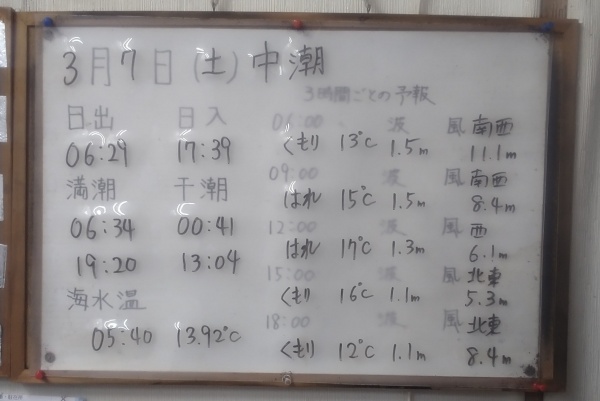 3月7日(土)中潮
3時間ごとの予報
日出 日入
06:29 17:39
満潮 干潮
06:34 00:41
19:20 13:04
海水温
05:40 13.92℃
06:00 波 風 南西
くもり 13℃ 1.5m 11.1m
09:00 波 風 南西
はれ 15℃ 1.5m 8.4m
12:00 波 風 西
はれ 17℃ 1.3m 6.1m
15:00 波 風 北東
くもり 16℃ 1.1m 5.3m
18:00 波 風 北東
くもり 12℃ 1.1m 8.4m